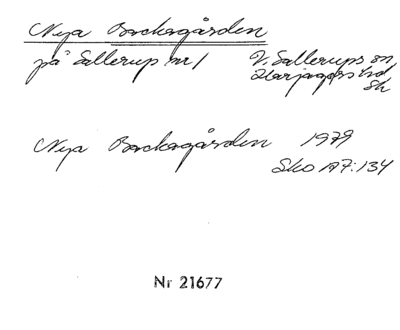 Nya Backagården
på Sallerup nr 1 V. Sallerups sn
Harjagers hd
Sk
Nya Backagården 1979
Sko A7:134
Nr 21677